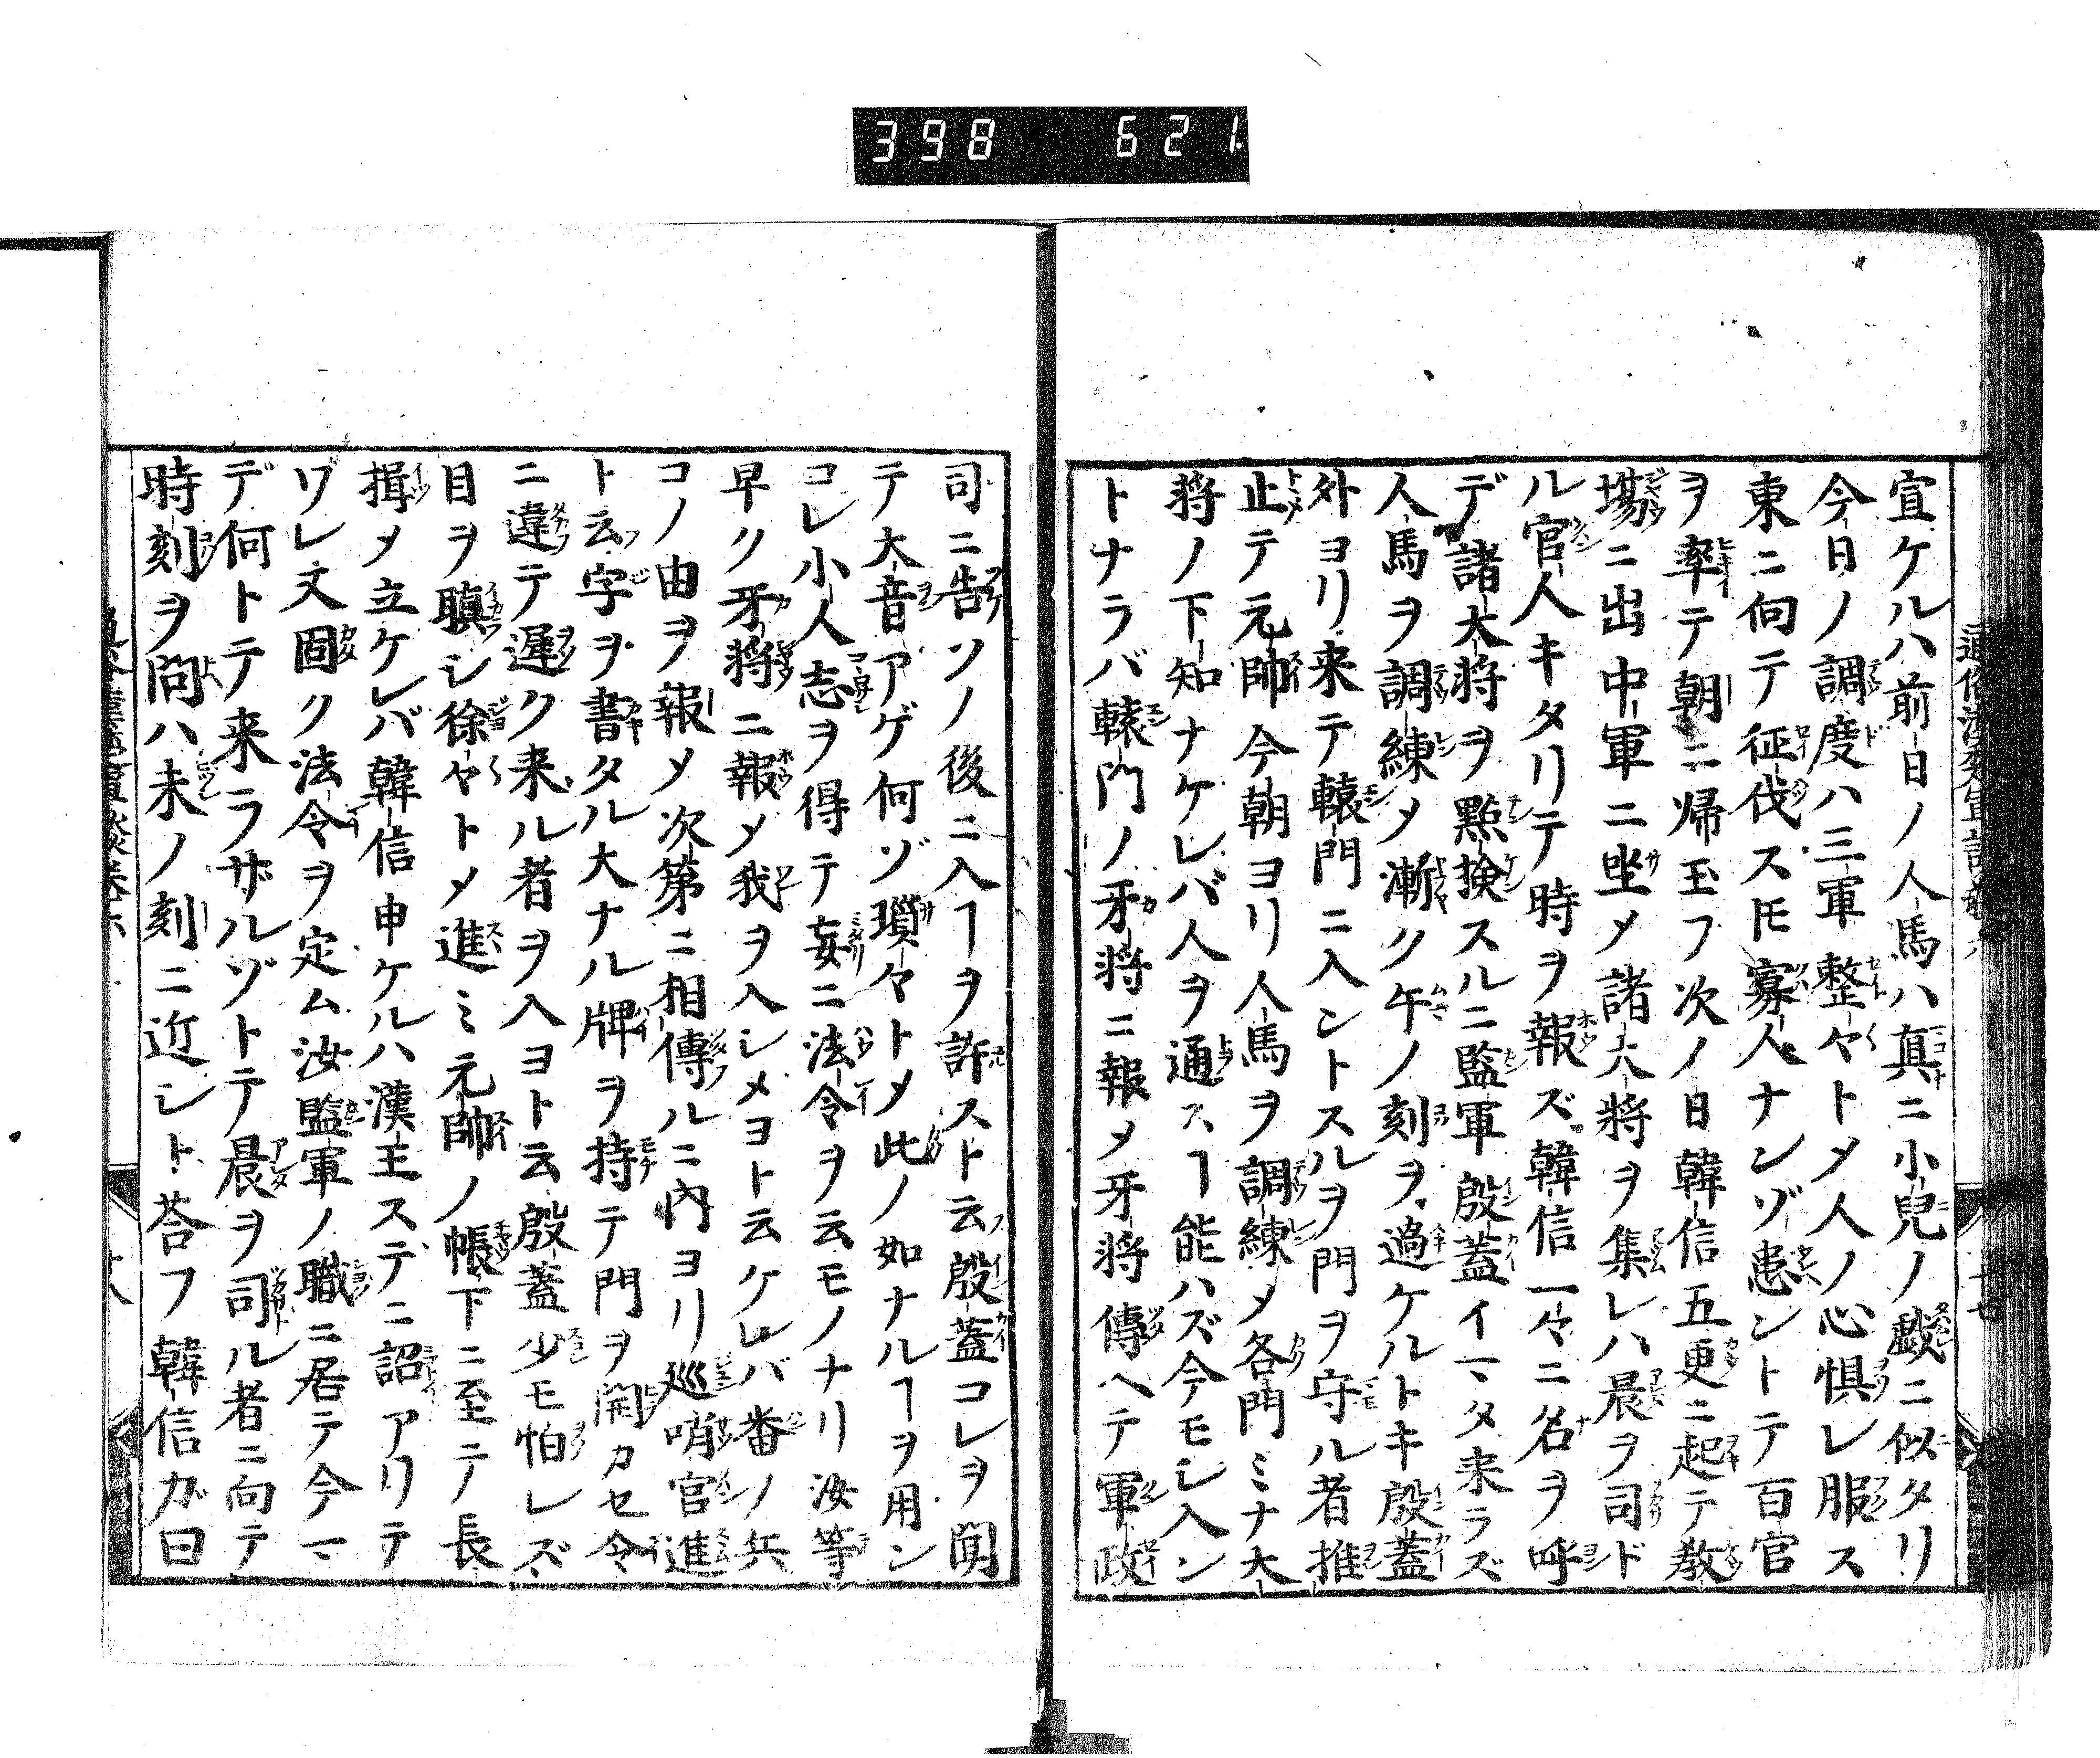 398 621
宣ケルハ前日ノ人馬ハ真ニ小兒ノ戯ニ似タリ
今日ノ調度ハ三軍整々トメ人ノ心惧レ服ス
東ニ向テ征伐ストモ寡人ナンゾ患ントテ百官
ヲ率テ朝ニ帰玉フ次ノ日韓信五更ニ起テ教
場ニ出中軍ニ坐メ諸大将ヲ集レハ晨ヲ司ド
ル官人キタリテ時ヲ報ズ韓信一々ニ名ヲ呼
デ諸大将ヲ點撿スルニ監軍殷蓋イマタ来ラズ
人馬ヲ調練メ漸ク午ノ刻ヲ過ケルトキ殷蓋
外ヨリ来テ轅門ニ入ントスルヲ門ヲ守ル者推
止テ元帥今朝ヨリ人馬ヲ調練メ各門ミナ大
将ノ下知ナケレバ人ヲ通スヿ能ハズ今モシ入ン
トナラバ轅門ノ牙将ニ報メ牙将傳ヘテ軍政
司ニ告ソノ後ニ入ヿヲ許スト云殷蓋コレヲ聞
テ大音アゲ何ゾ瑣々トメ此ノ如ナルヿヲ用ン
コレ小人志ヲ得テ妄ニ法令ヲ云モノナリ汝等
早ク牙将ニ報メ我ヲ入レメヨト云ケレバ番ノ兵
コノ由ヲ報メ次第ニ相傳ルニ内ヨリ廵哨官進
ト云字ヲ書タル大ナル牌ヲ持テ門ヲ開カセ令
ニ違テ遅ク来ル者ヲ入ヨト云殷蓋少モ怕レズ
目ヲ瞋シ徐々トメ進ミ元帥ノ帳下ニ至テ長
揖メ立ケレバ韓信申ケルハ漢王スデニ詔アリテ
ワレ文固ク法令ヲ定ム汝監軍ノ職ニ居テ今マ
デ何トテ来ラザルゾトテ晨ヲ司ル者ニ向テ
時刻ヲ問ハ未ノ刻ニ近シト荅フ韓信カ曰